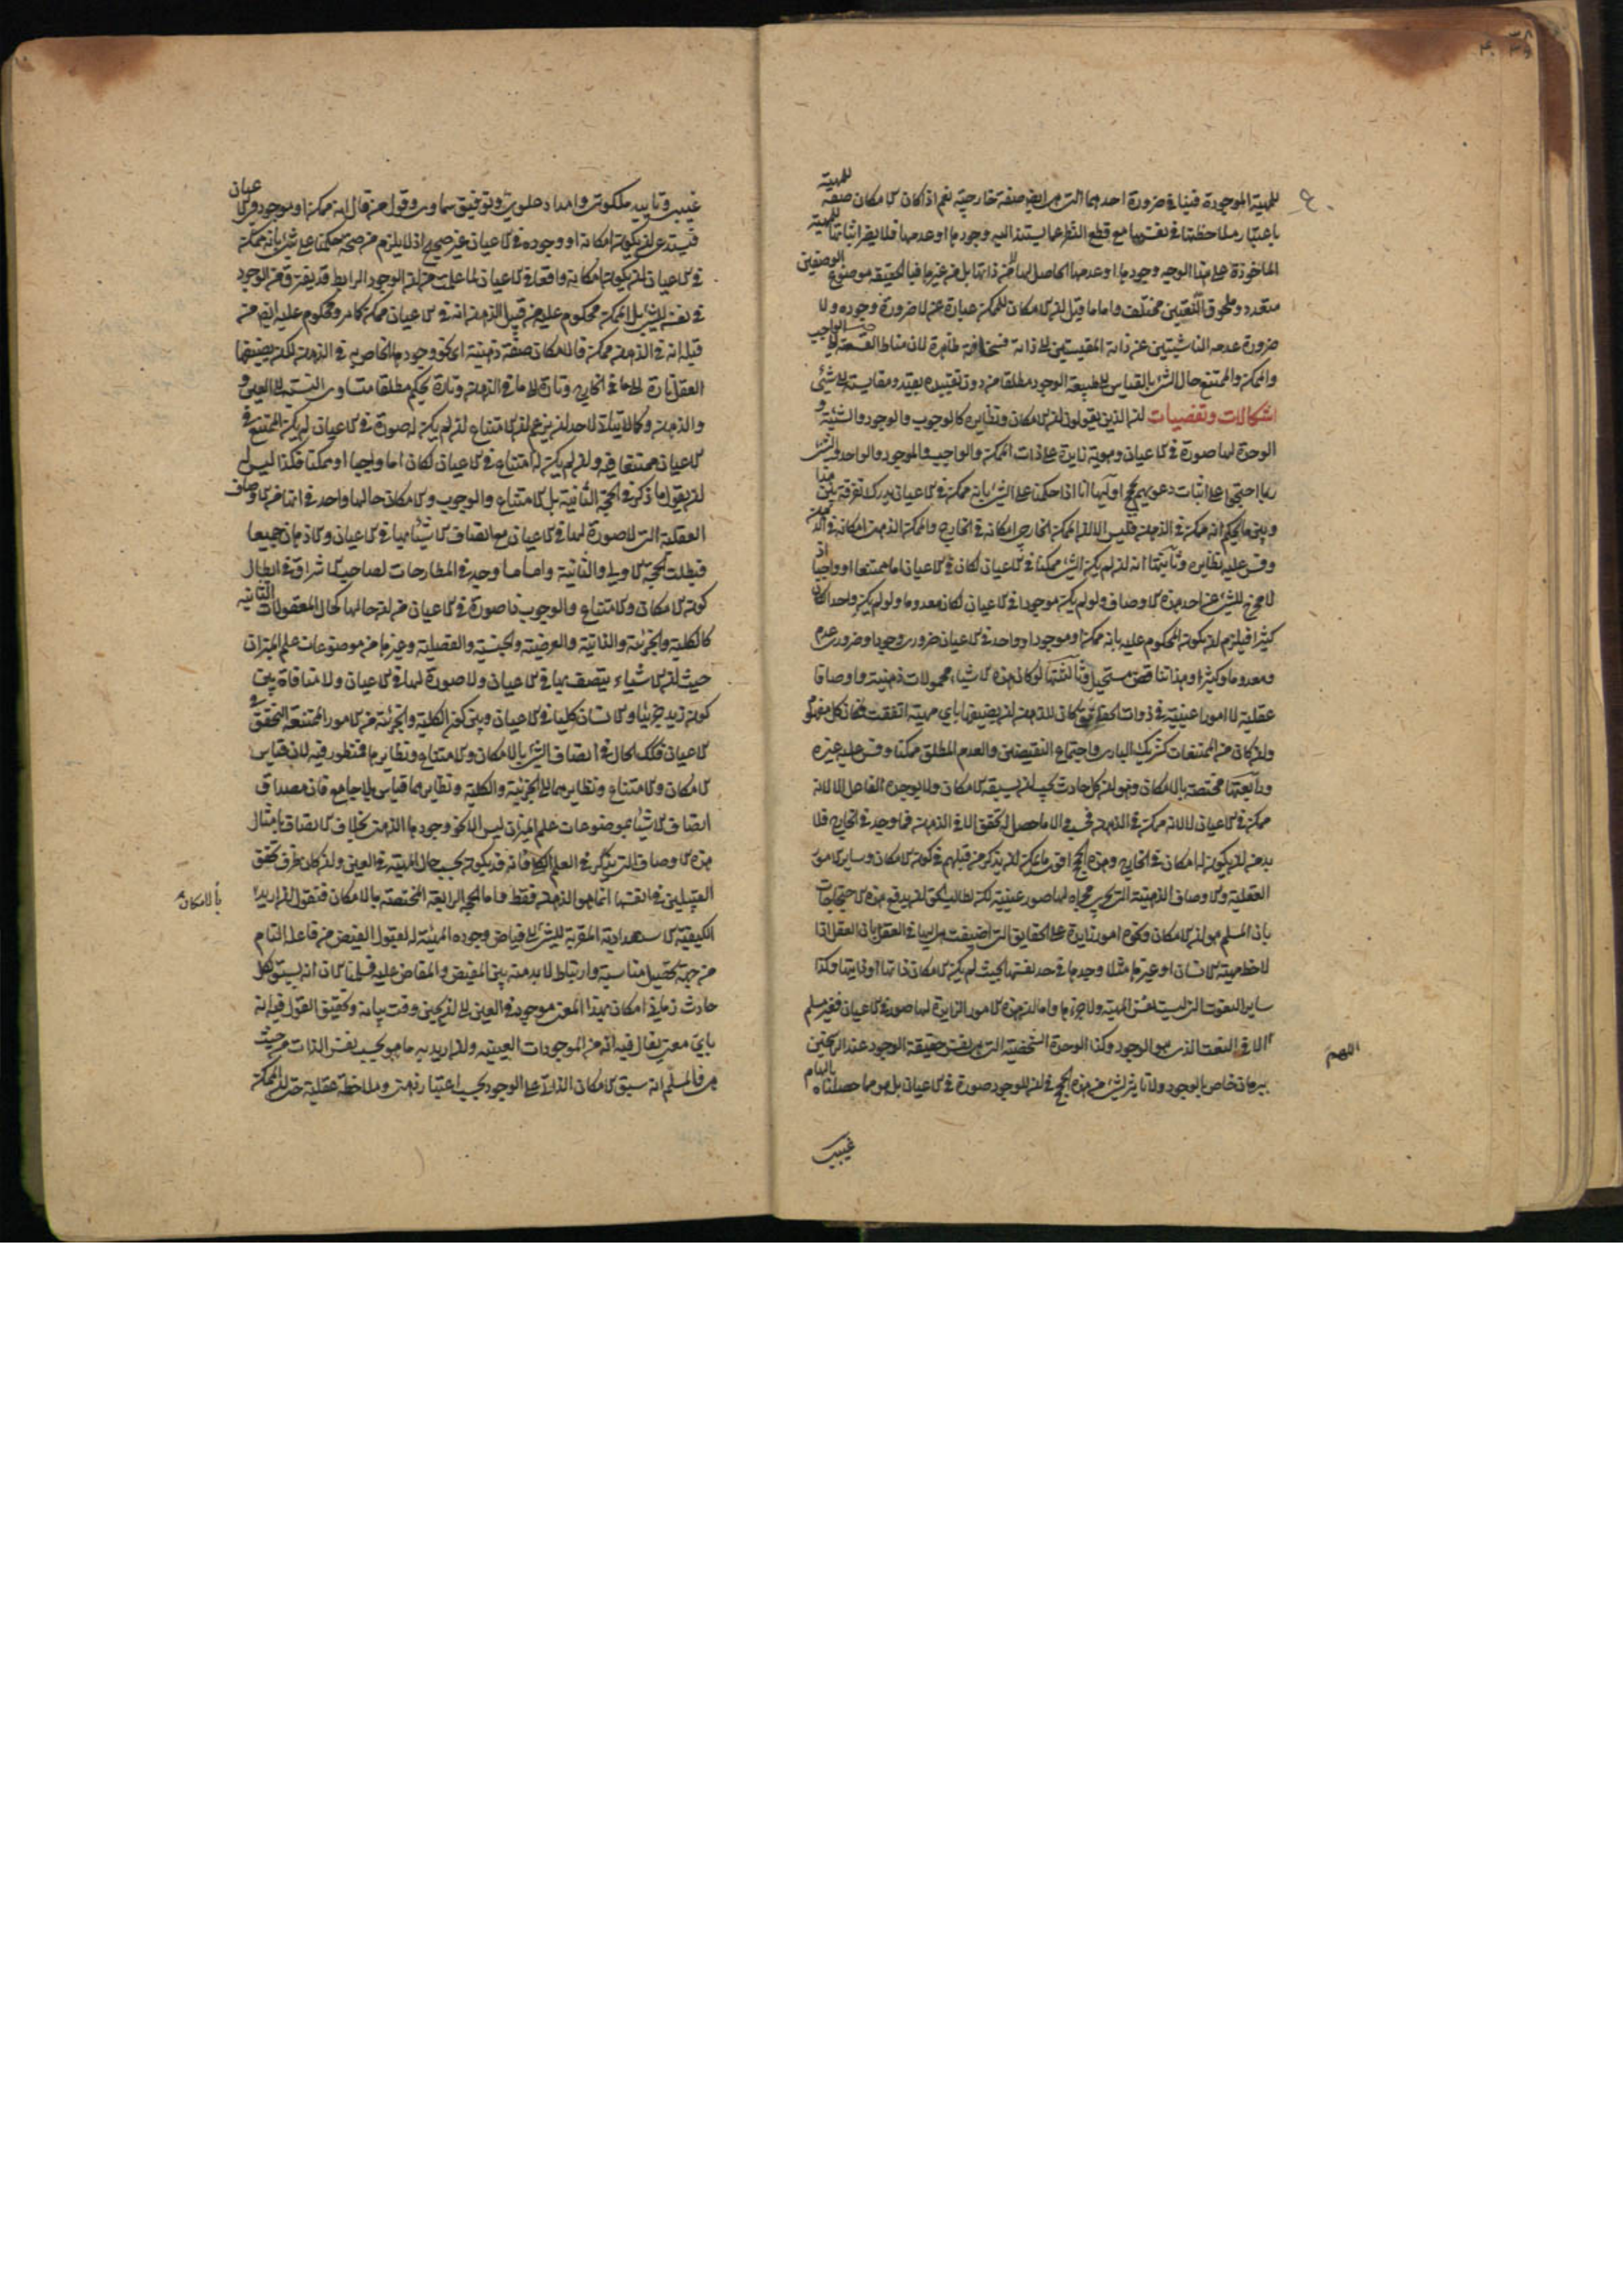 للمهية
للمهية الموجودة فينا في ضرورة احدهما التي هي ايضا صفة خارجية نعم اذا كان الامكان صفة
باعتبار ملاحظتها في نفسها مع قطع النظر عما يستند اليه وجودها او عدمها فلا يضر اثباتها للمهية
الماخوذة على هذا الوجه وجودها او عدمها الحاصل لها لا من ذاتها بل من غيرها فبالحقيقة موضوع الوصفين
متعدد وملحوق النعتين مختلف واما ما قيل ان الامكان للممكن عبارة عن لا ضرورة وجوده ولا
ضرورة عدمه الناشيتين عن ذاته المقيستين الى ذاته فسخافته ظاهرة لان مناط القسمة الى الواجب
والممكن والممتنع حال الشئ بالقياس الى طبيعة الوجود مطلقا من دون تقييده بقيد ومقايسته الى شئ
اشكالات وتفصيات ان الذين يقولون ان الامكان ونظايره كالوجوب والوجود والشيئية و
الوحدة لها صورة في الاعيان وهوية زايدة على ذات الممكن والواجب والموجود والواحد والشئ
ربما احتجوا على اثبات دعويهم بحجج اوليها انا اذا حكمنا على الشئ بانه ممكن في الاعيان ندرك تفرقة بين هذا
وبين ما يحكم انه ممكن في الذهن فليس الا ان الممكن الخارجي امكانه في الخارج والممكن الذهني امكانه في الذهن
وقس عليه نظايره وثانيتها انه ان لم يكن الشئ ممكنا في الاعيان لكان في الاعيان اما ممتنعا او واجبا اذ
لا مخرج للشئ عن احد هذه الاوصاف ولو لم يكن موجودا في الاعيان لكان معدوما ولو لم يكن واحدا لكان
كثيرا فيلزم ان يكون المحكوم عليه بانه ممكن او موجود او واحد في الاعيان ضروري وجود او ضروري عدم
ومعدوما وكثيرا وهذا تناقض مستحيل وثالثتها لو كان هذه الاشياء محمولات ذهنية واوصافا
عقلية لا امورا عينية في ذوات الحقايق كان للذهن ان يضيفها باي مهية اتفقت فكان كل مفهوم
وان كان من الممتنعات كشريك الباري واجتماع النقيضين والعدم المطلق ممكنا وقس عليه غيره
ورابعتها مختصة بالامكان وهو ان كل حادث يجب ان يسبقه الامكان ولا يوجده الفاعل الا لانه
ممكن في الاعيان لا لانه ممكن في الذهن فحسب والا ما حصل له تحقق الا في الذهن فما وجد في الخارج فلا
بد من ان يكون لها امكان في الخارج وهذه الحجج اقوى ما يمكن ان يذكر من قبلهم في كون الامكان وساير الامور
العقلية والاوصاف الذهنية التي تجري مجراه لها صور عينية لكن لطالب الحق ان يدفع هذه الاحتجاجات
بان المسلم هو ان الامكان ونحوه امور زايدة على الحقايق التي اضيفت هي اليها في العقل بان العقل اذا
لاحظ مهية الانسان او غيرها مثلا وجدها في حد نفسها بحيث لم يكن الامكان ذاتها او ذاتيتها وكذا
ساير النعوت التي ليست نفس المهية ولا جزءها واما ان هذه الامور الزايدة لها صورة في الاعيان فغير مسلم
الا في النعت الذي هو الوجود وكذا الوحدة الشخصية التي هي نفس حقيقة الوجود عند الراسخين
اللهم
ببرهان خاص بالوجود ولا تاثير لشئ من هذه الحجج في ان للوجود صورة في الاعيان بل هو مما حصلناه بالهام
غيبي
غيبي وتاييد ملكوتي وامداد علوي وتوفيق سماوي وقول من قال انه ممكن او موجود في الاعيان
فيستدعي ان يكون امكانه او وجوده في الاعيان غير صحيح اذ لا يلزم من صحة حكمنا على شئ بانه ممكن
في الاعيان ان يكون امكانه واقعا في الاعيان لما علمت من ان الوجود الرابط قد يفترق من الوجود
في نفسه للشئ بل الممكن محكوم عليه من قبل الذهن انه في الاعيان ممكن كما هو محكوم عليه ايضا من
قبله انه في الذهن ممكن فالامكان صفة ذهنية اي نحو وجودها الخاص به في الذهن لكن يضيفها
العقل تارة الى ما في الخارج وتارة الى ما في الذهن وتارة يحكم مطلقا متساوي النسبة الى العين و
والذهن وكما لا يتاتى لاحد ان يزعم ان الامتناع ان لم يكن له صورة في الاعيان لم يكن الممتنع في
الاعيان ممتنعا فيه وان لم يكن له امتناع في الاعيان لكان اما واجبا او ممكنا فكذا ليس له
ان يقول ما ذكر في الحجة الثانية بل الامتناع والوجوب والامكان حالها واحد في انها من الاوصاف
العقلية التي لا صورة لها في الاعيان مع اتصاف الاشياء بها في الاعيان والاذهان جميعا
فبطلت الحجة الاولى والثانية واما ما وجد في المطارحات لصاحب الاشراق في ابطال
كون الامكان والامتناع والوجوب ذا صورة في الاعيان من ان حالها كحال المعقولات الثانية
كالكلية والجزئية والذاتية والعرضية والجنسية والفصلية وغيرها من موضوعات علم الميزان
حيث ان الاشياء يتصف بها في الاعيان ولا صورة لها في الاعيان ولا منافاة بين
كون زيد جزئيا والانسان كليا في الاعيان وبين كون الكلية والجزئية من الامور الممتنعة التحقق في
الاعيان فكذلك الحال في اتصاف الشئ بالامكان والامتناع ونظايرها فمنظور فيه لان قياس
الامكان والامتناع ونظايرهما الى الجزئية والكلية ونظايرهما قياس بلا جامع فان مصداق
اتصاف الاشياء بموضوعات علم الميزان ليس الا نحو وجودها الذهني بخلاف الاتصاف بامثال
هذه الاوصاف التي يذكر في العلم الكلي فانه قد يكون بحسب حال المهية في العين وان كان ظرف تحقق
القبيلين في انفسها انما هو الذهن فقط واما الحجة الرابعة المختصة بالامكان فنقول ان اريد
بالامكان
الكيفية الاستعدادية المقربة للشئ الى فياض وجوده المهيئة له لقبول الفيض من فاعله التام
من جهة تحصيل مناسبة وارتباط لا بد منه بين المفيض والمفاض عليه فسلمنا الان انه يسبق كل
حادث زماني امكان بهذا المعنى موجود في العين الى ان يحين وقت بيانه وتحقيق القول فيه انه
باي معنى يقال فيه انه من الموجودات العينية وان اريد به ما هو بحسب نفس الذات من حيث
هي فالمسلم انه سبق الامكان الذاتي على الوجود بحسب اعتبار ذهني وملاحظة عقلية حتى ان الممكن